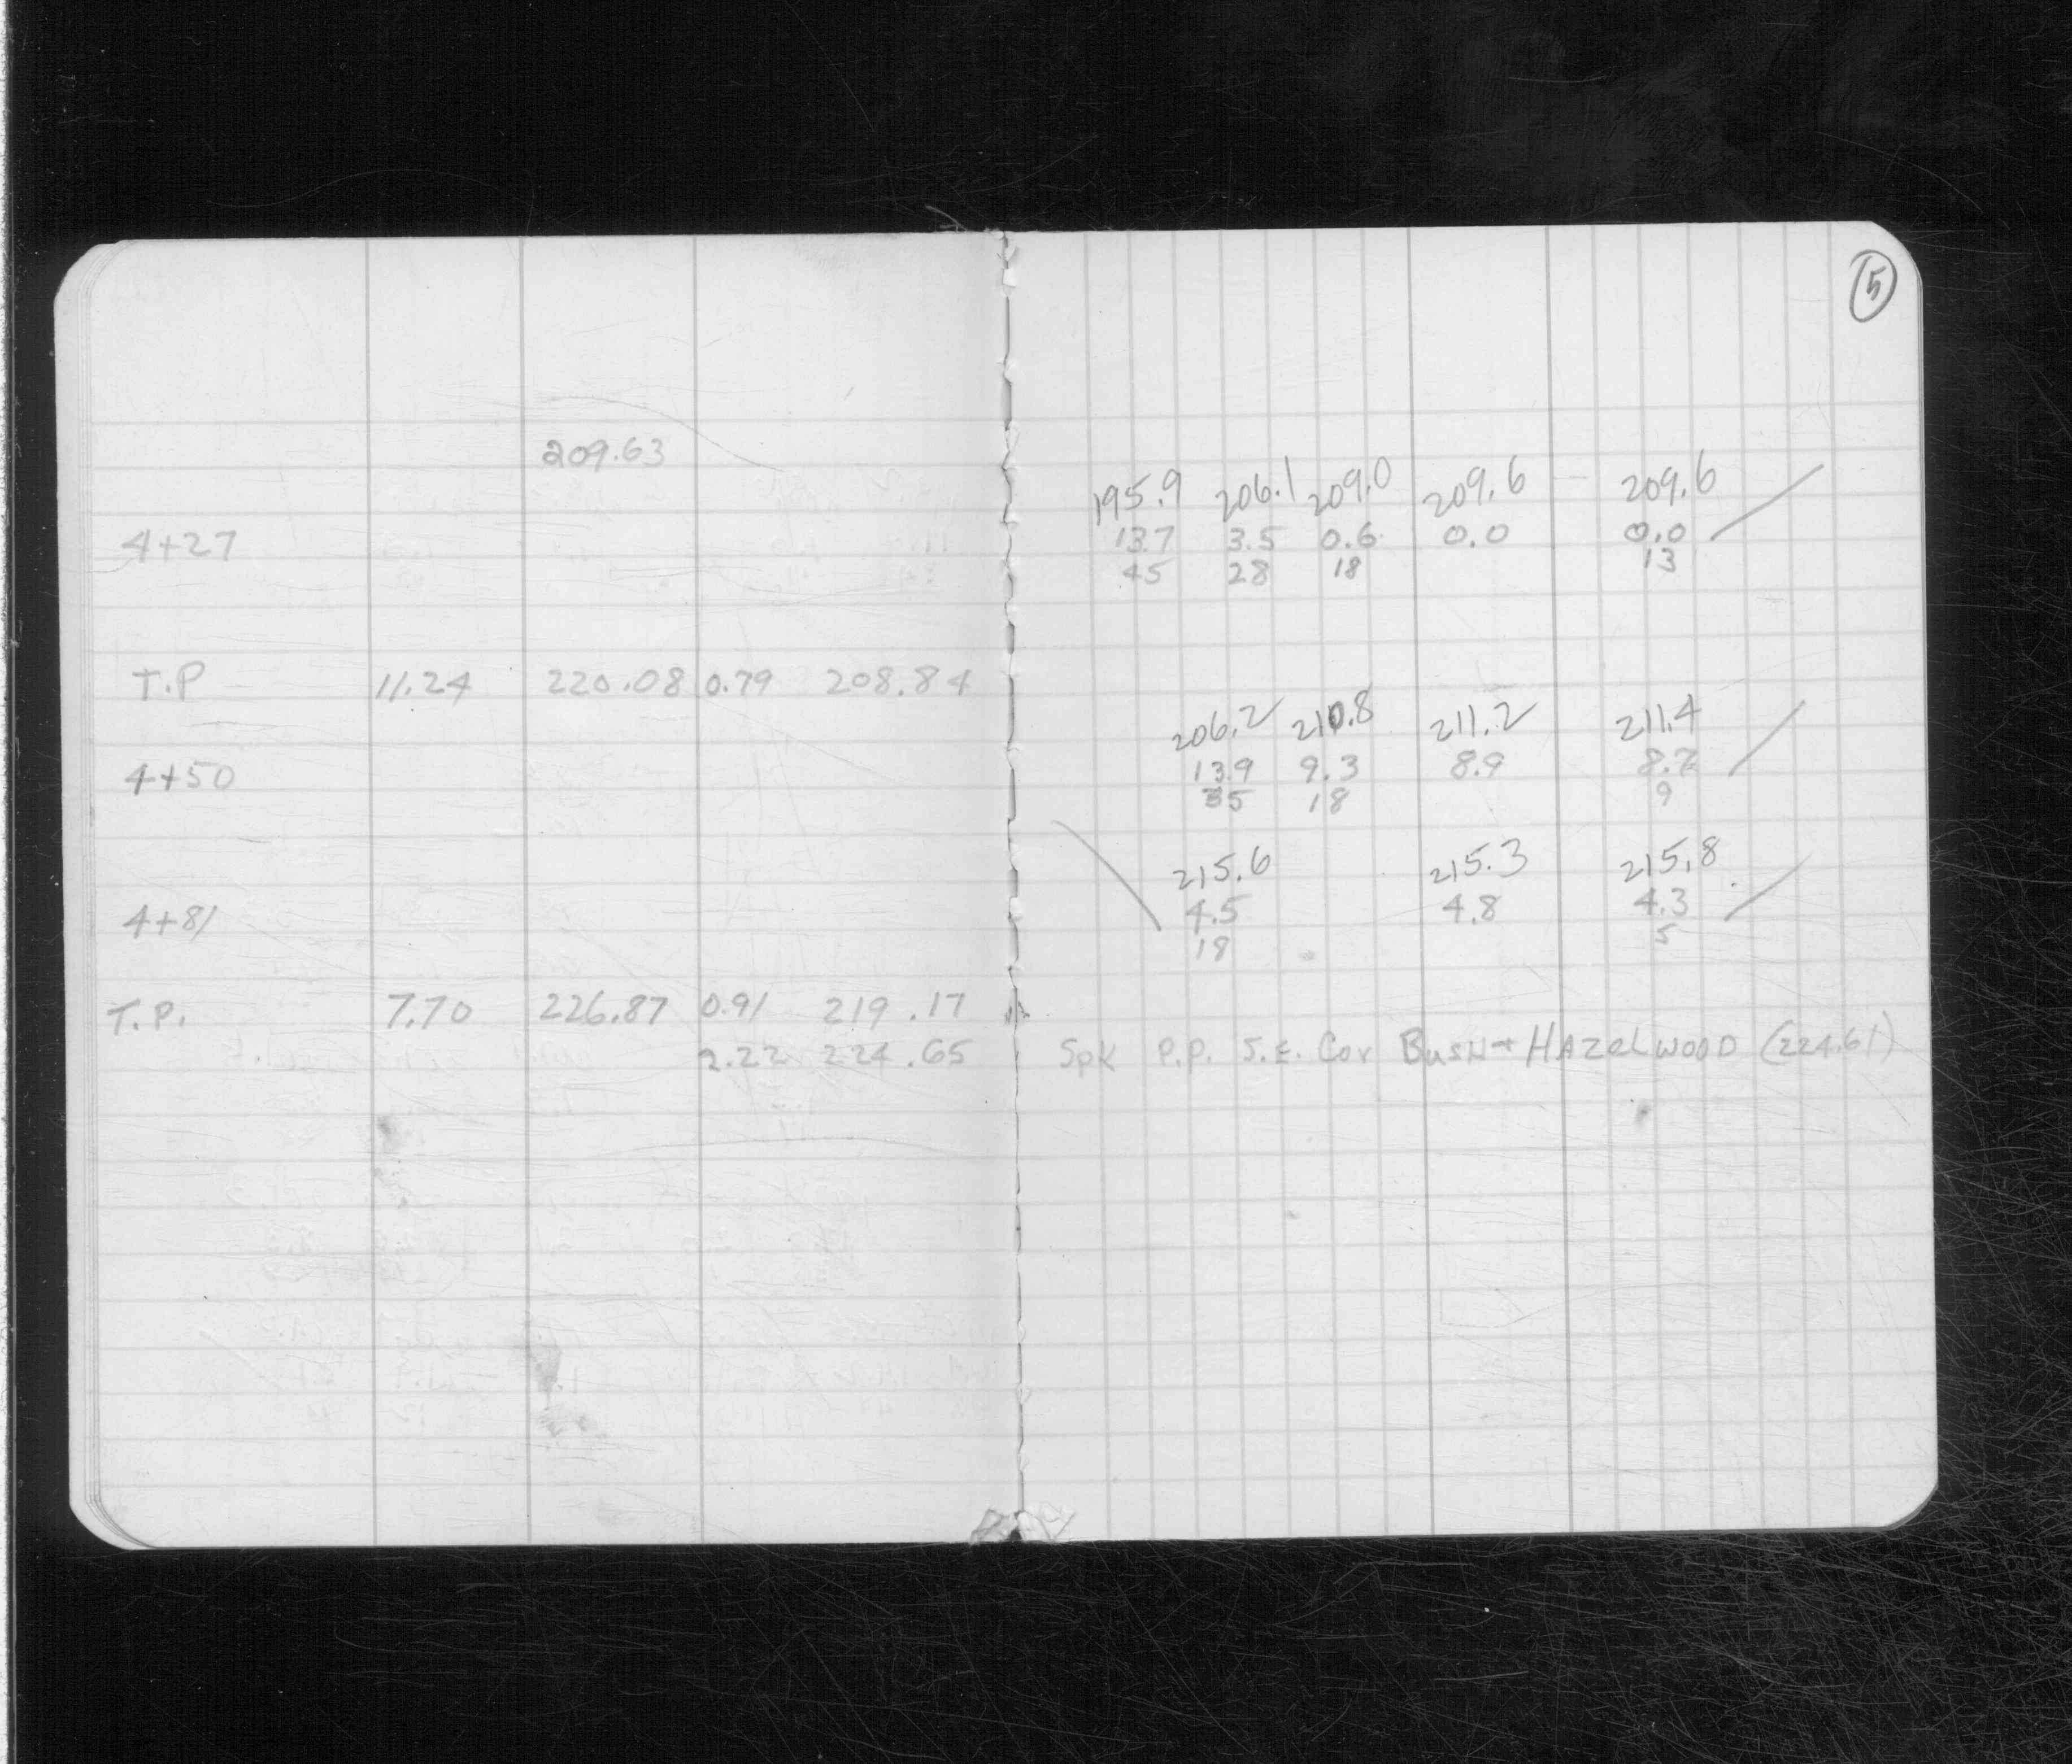 5
209.63
195.9 206.1 209.0 209.6 209.6
4+27 13.7 3.5 0.6 0.0 0.0
45 28 18 13
T.P 11.24 220.08 0.79 208.84
206.2 210.8 211.2 211.4
4+50 13.9 9.3 8.9 8.7
35 18 9
215.6 215.3 215.8
4+81 4.5 4.8 4.3
18 5
T.P. 7.70 226.87 0.91 219.17
2.22 224.65 Spk P.P. S.E. Cor BUSH + HAZELWOOD (224.61)